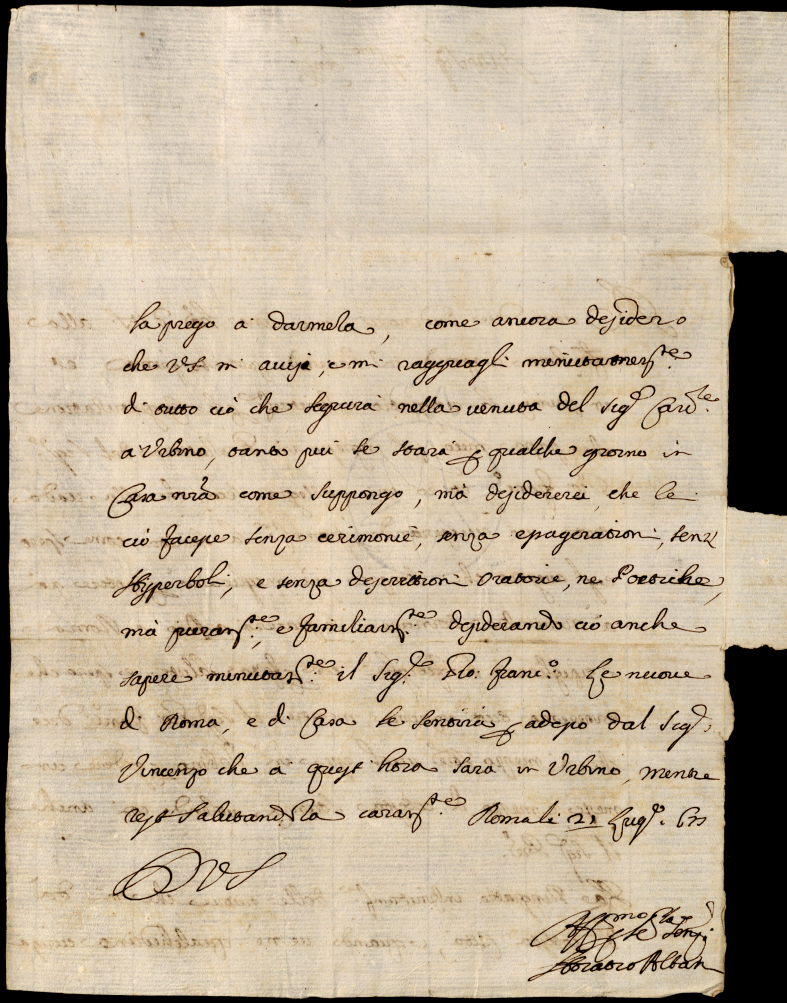 la prego à darmela, come ancora desidero
che VS mi avisi, e mi ragguagli minutamente
di tutto ciò che seguirà nella venuta del Sigr Cardle
a Urbino, tanto più se starà p qualche giorno in
Casa nrã come suppongo, mà desidererei che le
ciò facesse senza cerimonie, senza esagerationi, senz
Hyperboli, e senza descrittioni oratorie, ne Poetiche,
mà puramte, e familiarmte desiderando ciò anche
sapere minutamte il Sigr Gio: Franco. Le nuove
di Roma, e di Casa le sentirà p adesso dal Sigr
Vincenzo che à quest hora sarà in Urbino, mentre
resto salutandola caramte. Roma li 21 Lugo.
D VS
Horatio Albani